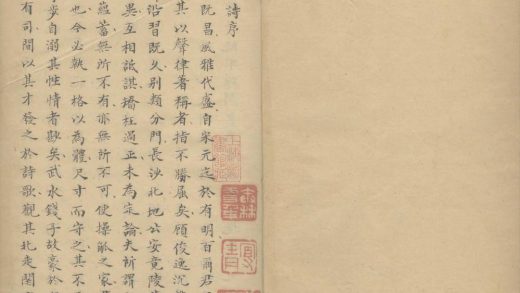 詩序
既昌風雅代盛自宋元迄於有明百爾君
其以聲律著稱者指不勝屈矣顧俊逸沉
沿習既久別類分門長沙北地公安竟陵
異互相詆諆矯枉過正未為定論夫所謂
蘊蓄無所不有亦無所不可使操觚之家
也今必執一格以為體尺寸而守之其不
步自溺其性情者歟矣武水錢子故豪於
有司間以其才發之於詩歌觀其北走關